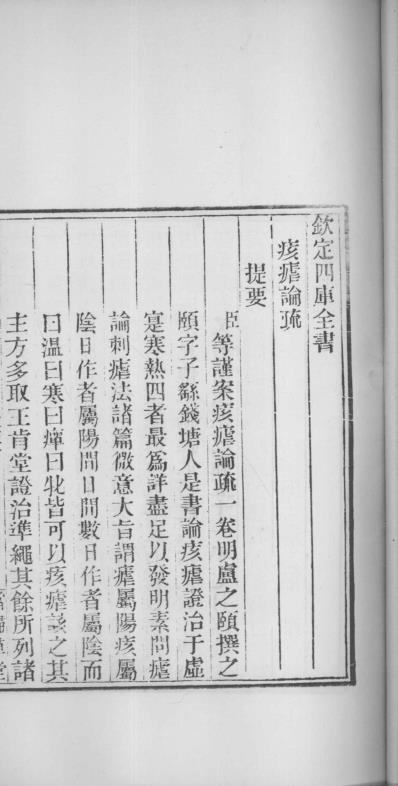 欽定四庫全書
痎瘧論疏
提要
臣等謹案痎瘧論疏一卷明盧之頤撰之
頤字子繇錢塘人是書論痎瘧證治于虛
寔寒熱四者最為詳盡足以發明素問瘧
論刺瘧法諸篇微意大旨謂瘧屬陽痎屬
陰日作者屬陽間日間數日作者屬陰而
曰温曰寒曰癉曰牝皆可以痎瘧該之其
主方多取王肯堂證治準繩其餘所列諸